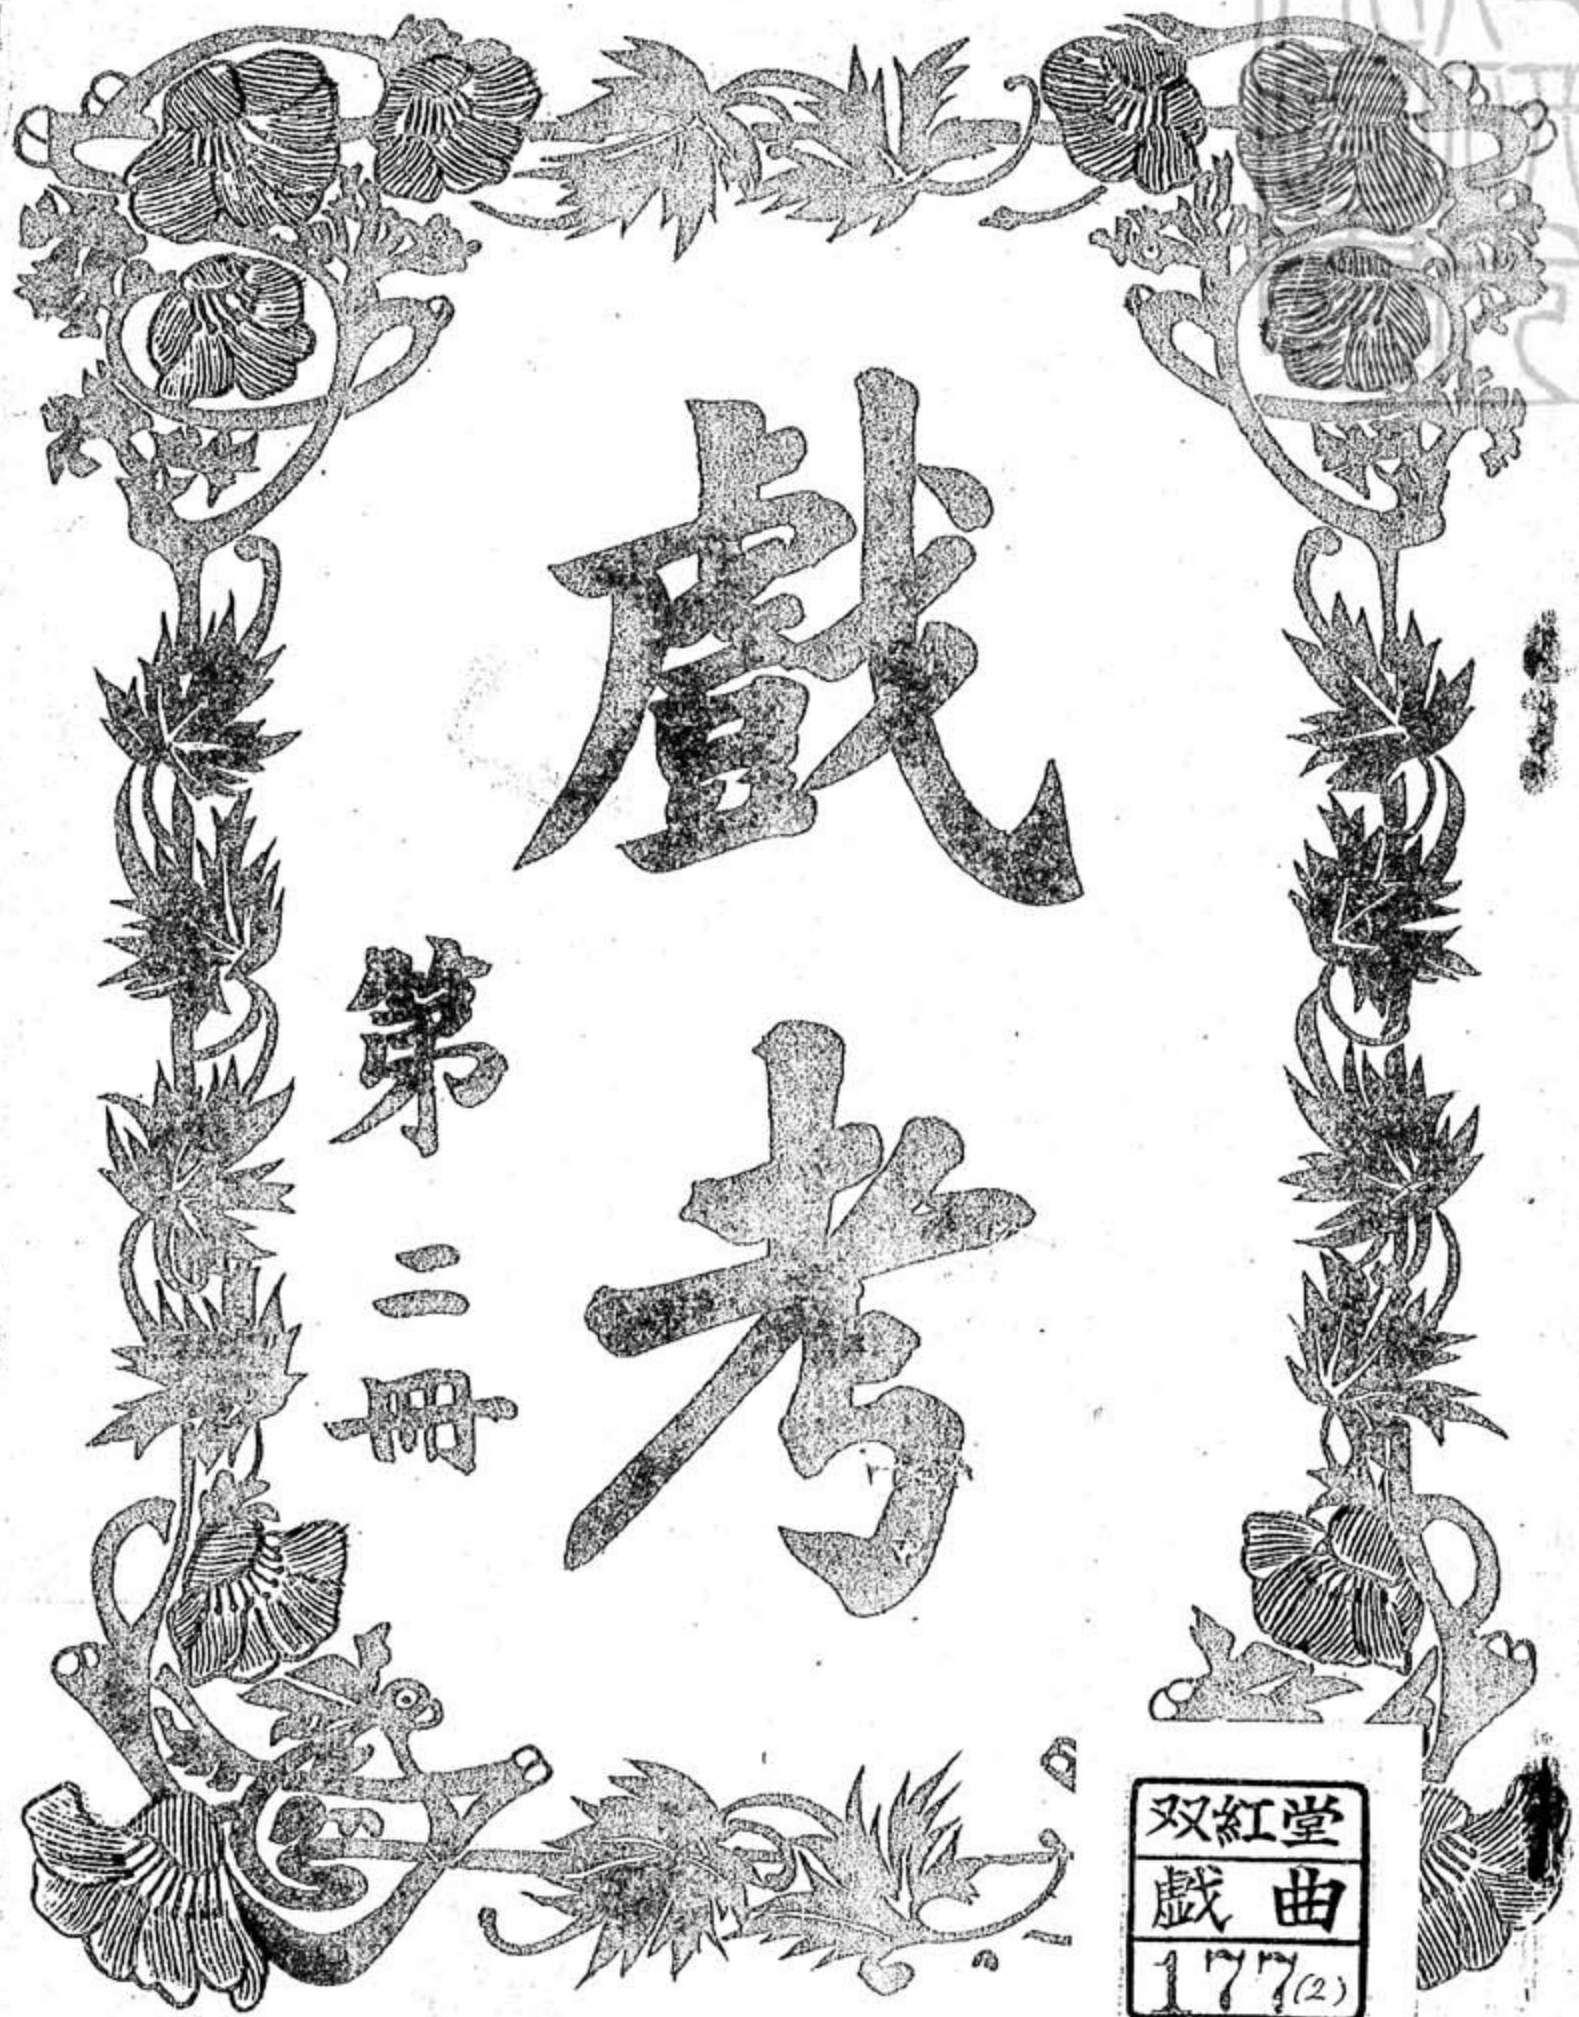 戲考
第二冊
双紅堂
戯曲
177(2)